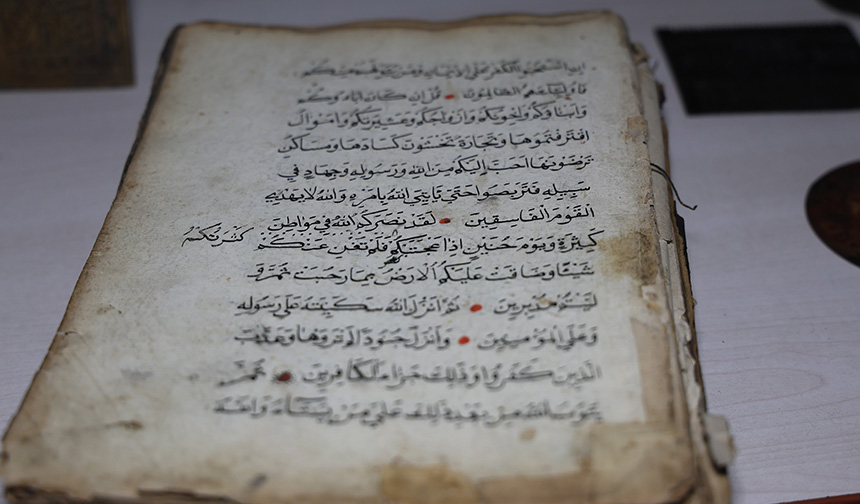 ان استحبوا الكفر على الايمان ومن يتولهم منكم
فاولئك هم الظالمون قل ان كان اباؤكم
وابناؤكم واخوانكم وازواجكم وعشيرتكم واموال
اقترفتموها وتجارة تخشون كسادها ومساكن
ترضونها احب اليكم من الله ورسوله وجهاد في
سبيله فتربصوا حتى ياتي الله بامره والله لا يهدي
القوم الفاسقين لقد نصركم الله في مواطن
كثيرة ويوم حنين اذ اعجبتكم فلم تغن عنكم كثرتكم
شيئا وضاقت عليكم الارض بما رحبت ثم و
ليتم مدبرين ثم انزل الله سكينته على رسوله
وعلى المؤمنين وانزل جنودا لم تروها وعذب
الذين كفروا وذلك جزاء الكافرين ثم
يتوب الله من بعد ذلك على من يشاء والله